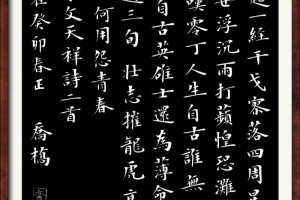 起一經干戈寥落四周星
世浮沉雨打蘋惶恐灘
嘆零丁人生自古誰無
自古英雄士還為薄命
過三旬壯志摧龍虎高
何用怨青春
文天祥詩二首
在癸卯春正 喬